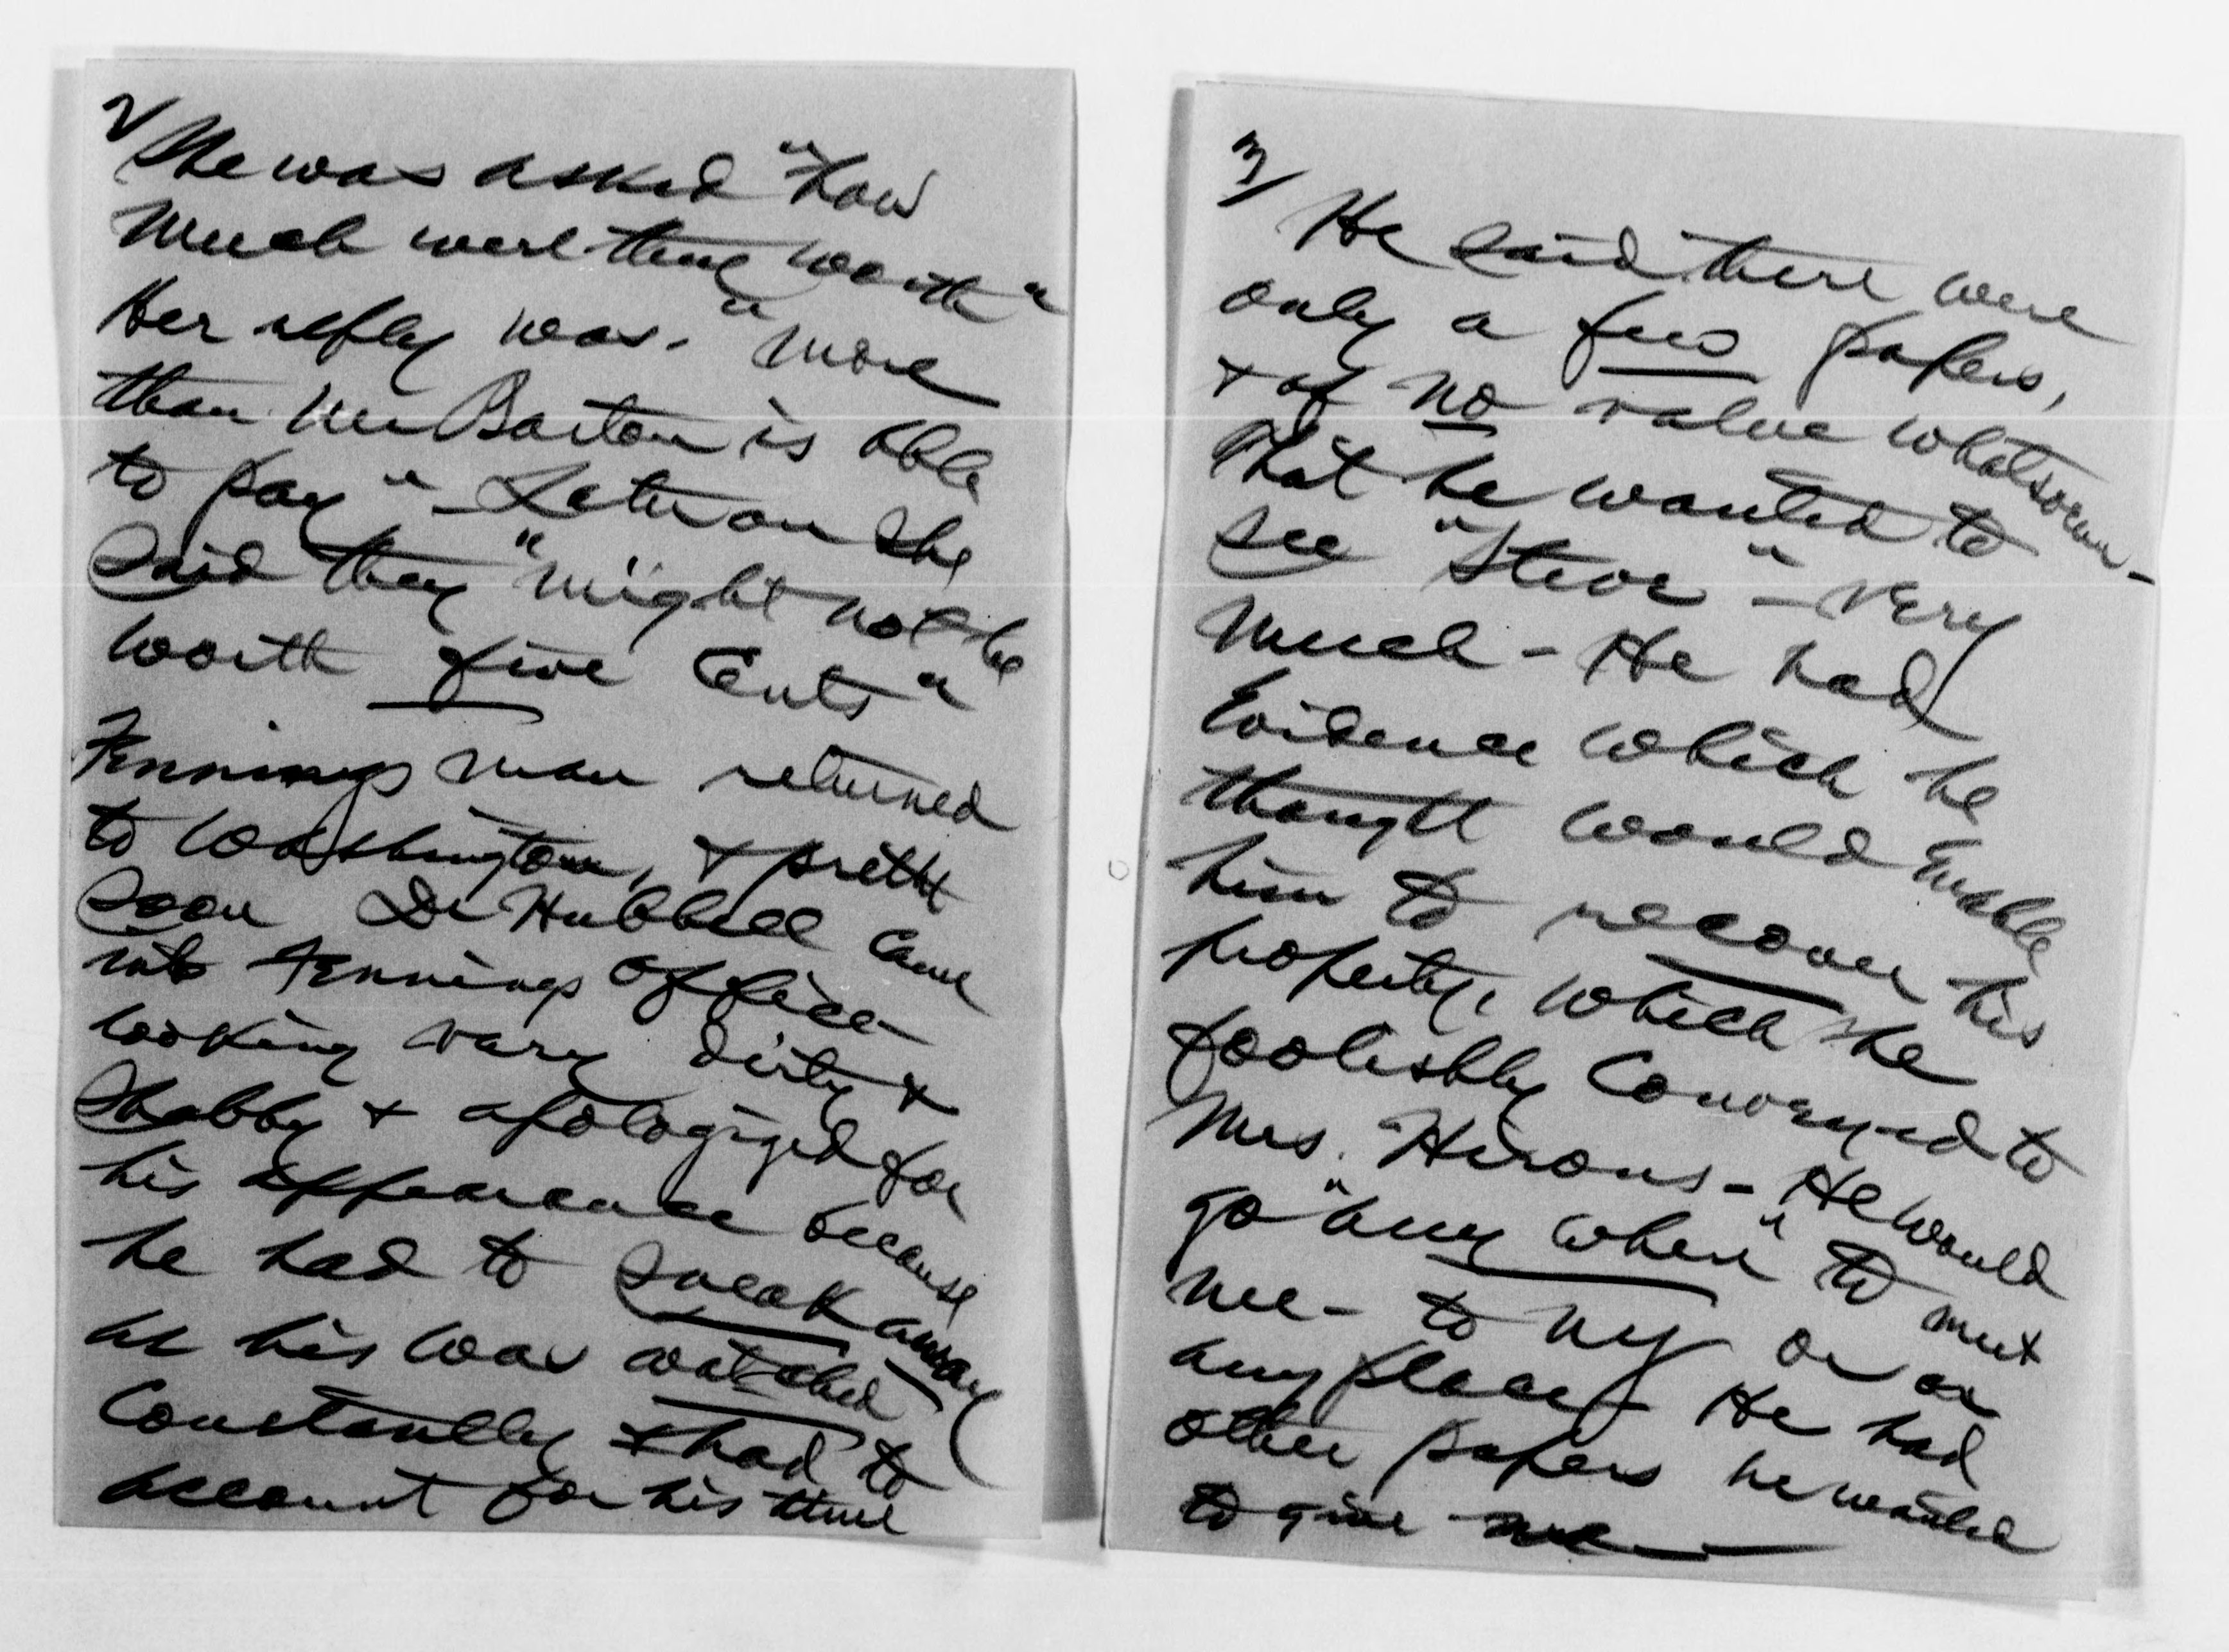 2/
She was asked "how
much were they worth"
Her reply was. "more
than Mr Barton is able
to pay" - Later on she
said they "might not be
worth five cents"
Tennings man returned
to Washington, & pretty
soon Dr Hubbell came
into Tennings office
looking very dirty &
shabby & apologized for
his appearance because
he had to sneak away
as his was watched
constantly & had to
account for his time
3/
He said there were
only a few papers,
& of no value whatsoever -
That he wanted to
see "Steve" - very
much - He had
evidence which he
thought would enable
him to recover his
property, which he
foolishly conveyed to
Mrs. Hirons - He would
go "any where" to meet
me - to NY or or
any place - He had
other papers he wanted
to give me -